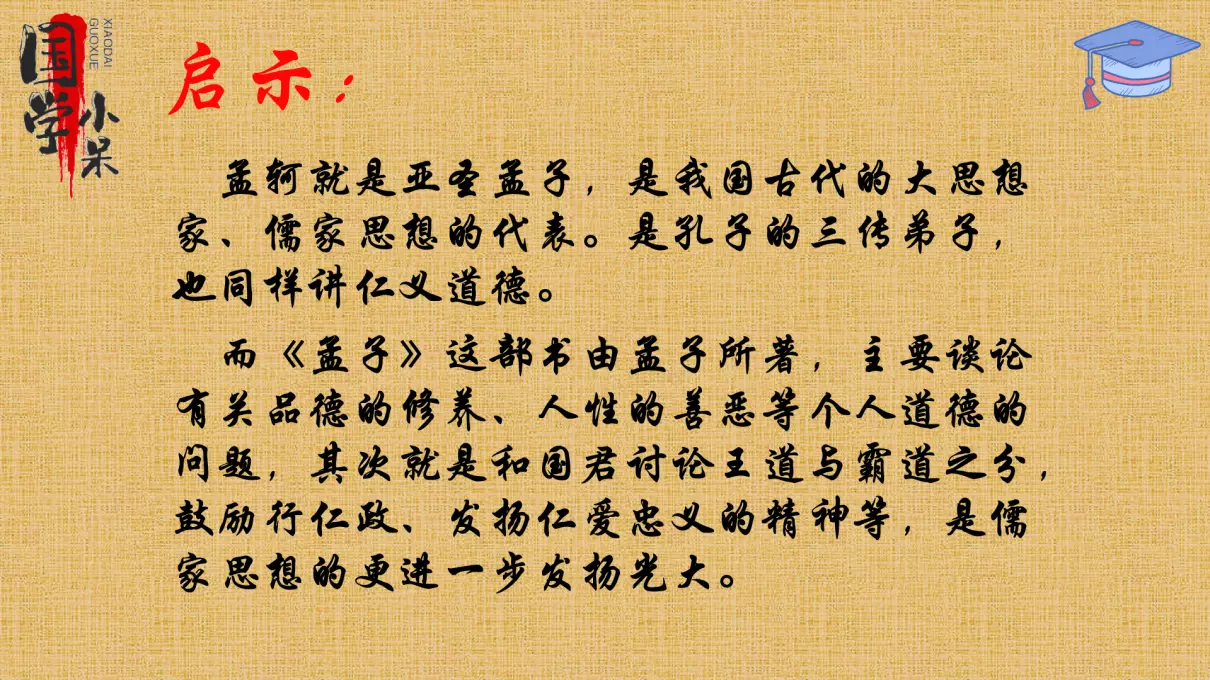 国学
小呆
XIAODAI
GUOXUE
启示：
孟轲就是亚圣孟子，是我国古代的大思想
家、儒家思想的代表。是孔子的三传弟子，
也同样讲仁义道德。
而《孟子》这部书由孟子所著，主要谈论
有关品德的修养、人性的善恶等个人道德的
问题，其次就是和国君讨论王道与霸道之分，
鼓励行仁政、发扬仁爱忠义的精神等，是儒
家思想的更进一步发扬光大。